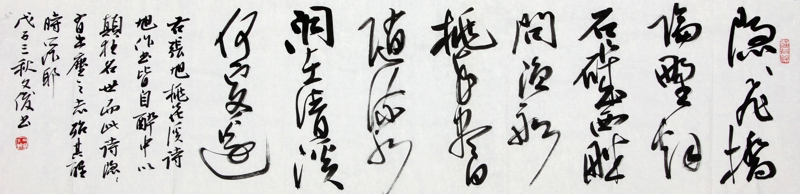 隐隐飞桥
隔野烟
石矶西畔
问渔船
桃花尽日
随流水
洞在清溪
何处边
右张旭桃花溪诗
旭作书皆自醉中以
颠狂名世而此诗隐隐
有出尘之志殆其醒
时深耶
戊子三秋文俊书